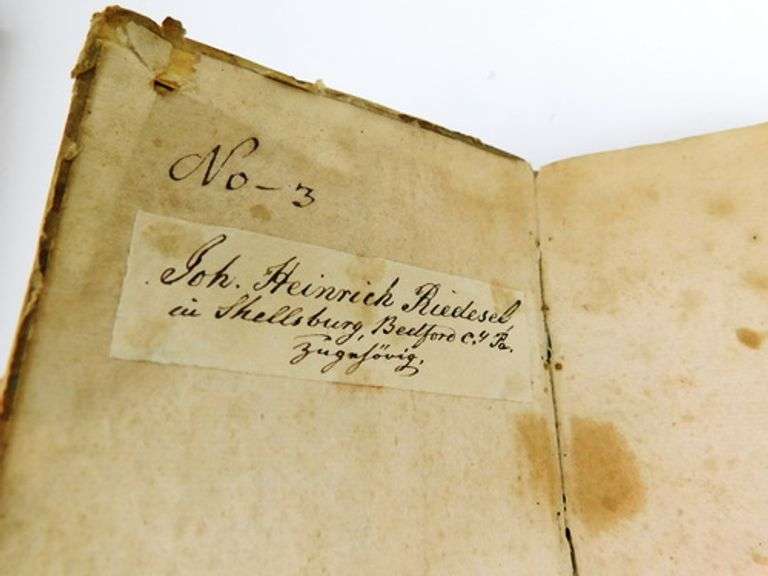 No-3
Joh. Heinrich Riedesel
in Shellsburg, Bedford C.y Pa.
zugehörig.